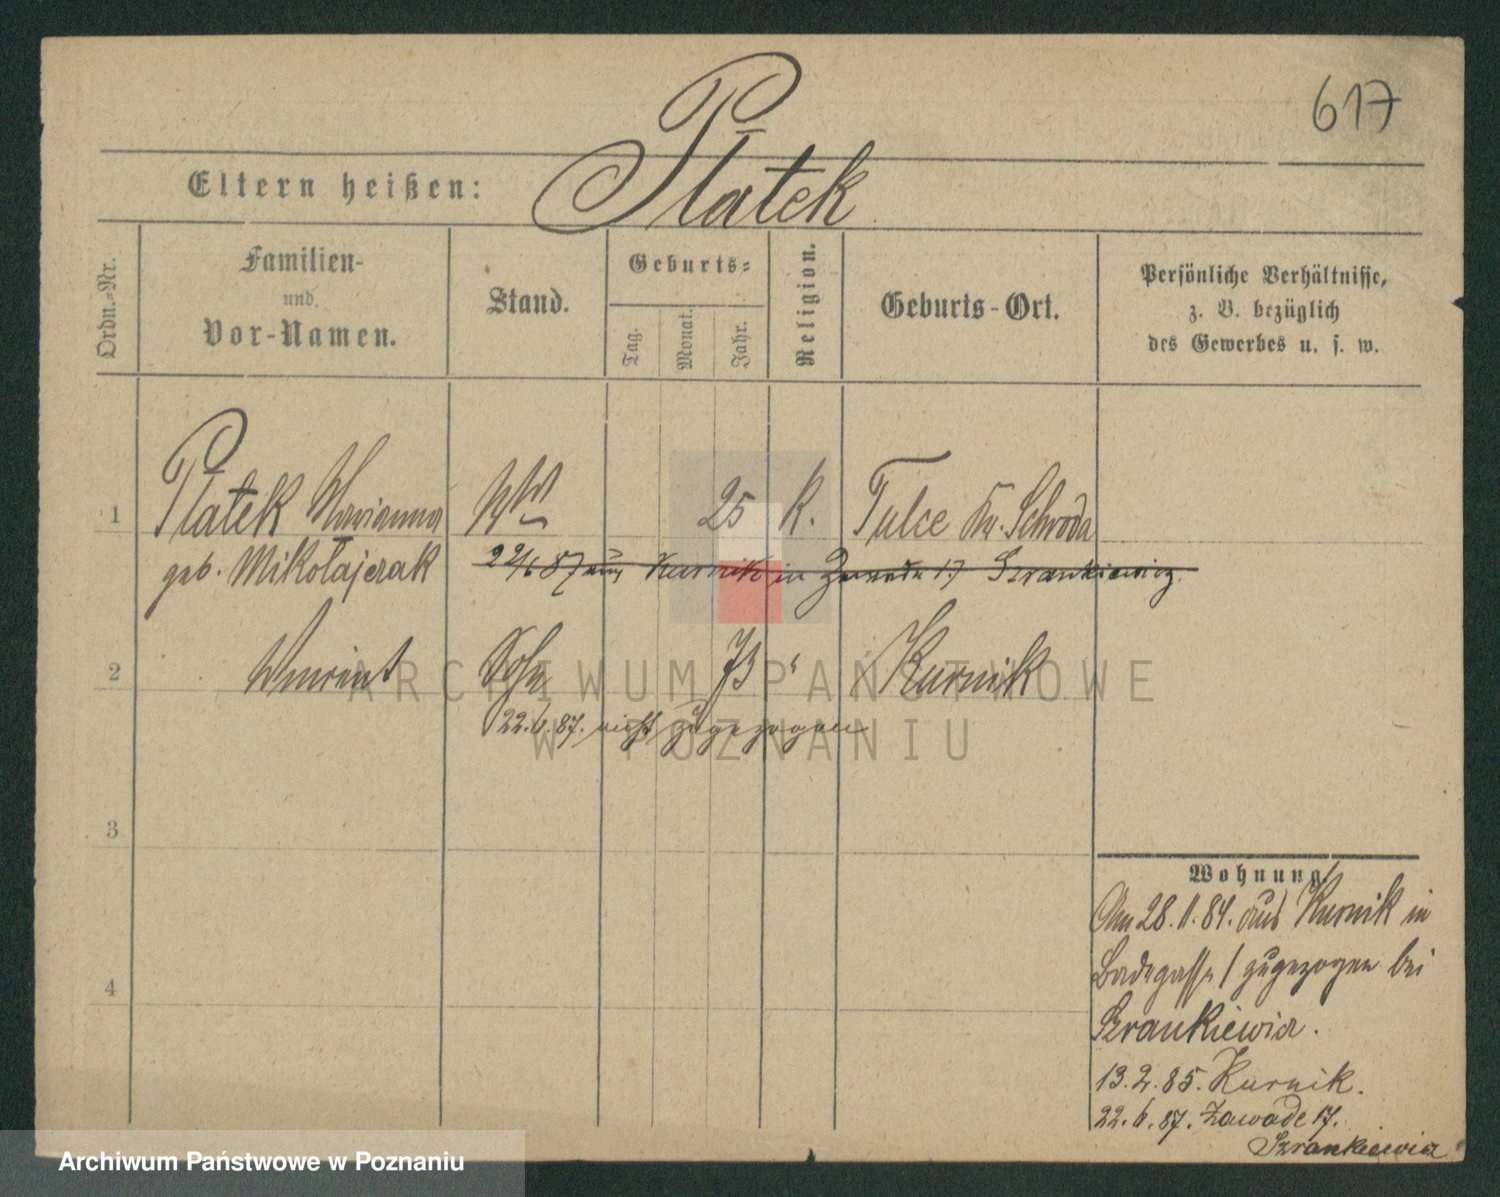 617
Eltern heißen: Płatek
Ordn.-Nr.
Familien-
und
Vor-Namen.
Stand.
Geburts-
Tag.
Monat.
Jahr.
Religion.
Geburts-Ort.
Persönliche Verhältnisse,
z. B. bezüglich
des Gewerbes u. s. w.
1 Płatek Marianna Ww 25 K. Tulce Kr. Schroda
geb. Mikołajczak
22/6 87 aus Kurnik in Zawade 17 Szrankiewicz.
2 Vincent Sohn 73 " Kurnik
22.6.87. nicht zugezogen
3
4
Wohnung.
Am 28.11.84. aus Kurnik in
Badegasse 1 zugezogen bei
Szrankiewicz.
13.2.85. Kurnik.
22.6.87. Zawade 17.
Szrankiewicz
ARCHIWUM PAŃSTWOWE
W POZNANIU
Archiwum Państwowe w Poznaniu